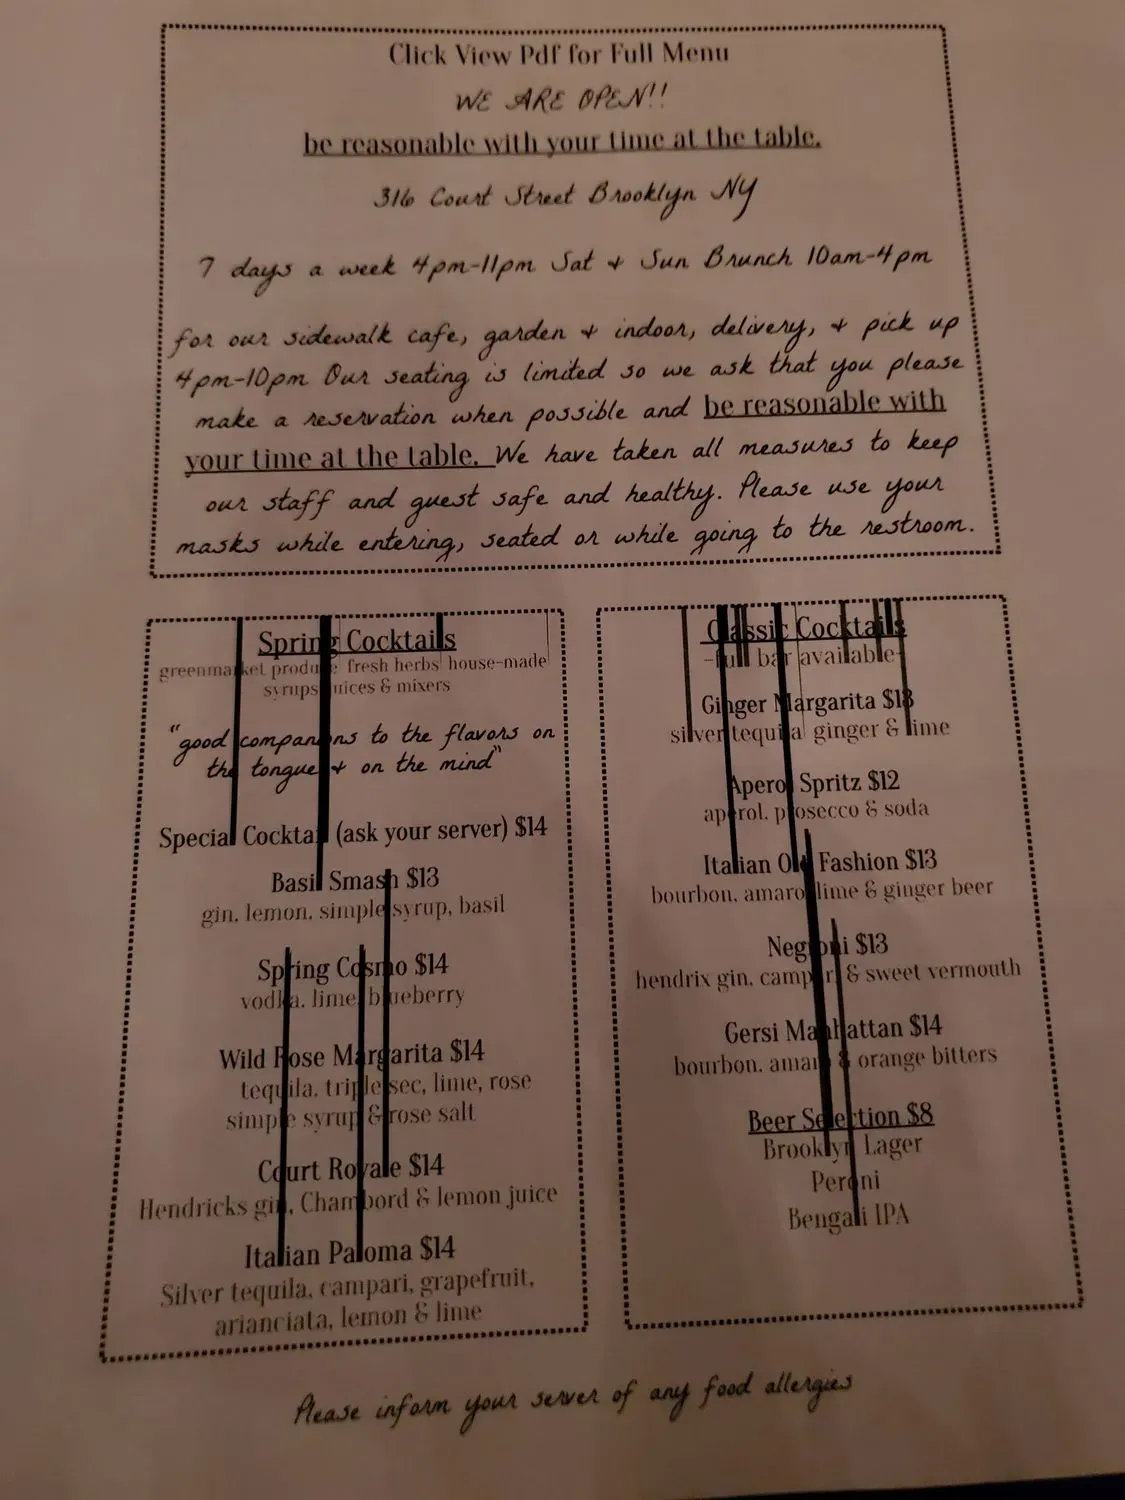 Click View Pdf for Full Menu
WE ARE OPEN!!
be reasonable with your time at the table.
316 Court Street Brooklyn NY
7 days a week 4pm-11pm Sat & Sun Brunch 10am-4pm
for our sidewalk cafe, garden & indoor, delivery, & pick up
4pm-10pm Our seating is limited so we ask that you please
make a reservation when possible and be reasonable with
your time at the table. We have taken all measures to keep
our staff and guest safe and healthy. Please use your
masks while entering, seated or while going to the restroom.
Spring Cocktails
greenmarket produce fresh herbs house-made
syrups juices & mixers
"good companions to the flavors on
the tongue & on the mind"
Special Cocktail (ask your server) $14
Basil Smash $13
gin, lemon, simple syrup, basil
Spring Cosmo $14
vodka, lime, blueberry
Wild Rose Margarita $14
tequila, triple sec, lime, rose
simple syrup & rose salt
Court Royale $14
Hendricks gin, Chambord & lemon juice
Italian Paloma $14
Silver tequila, campari, grapefruit,
arianciata, lemon & lime
Classic Cocktails
-full bar available-
Ginger Margarita $13
silver tequila ginger & lime
Aperol Spritz $12
aperol, prosecco & soda
Italian Old Fashion $13
bourbon, amaro, lime & ginger beer
Negroni $13
hendrix gin, campari, & sweet vermouth
Gersi Manhattan $14
bourbon, amaro & orange bitters
Beer Selection $8
Brooklyn Lager
Peroni
Bengali IPA
Please inform your server of any food allergies